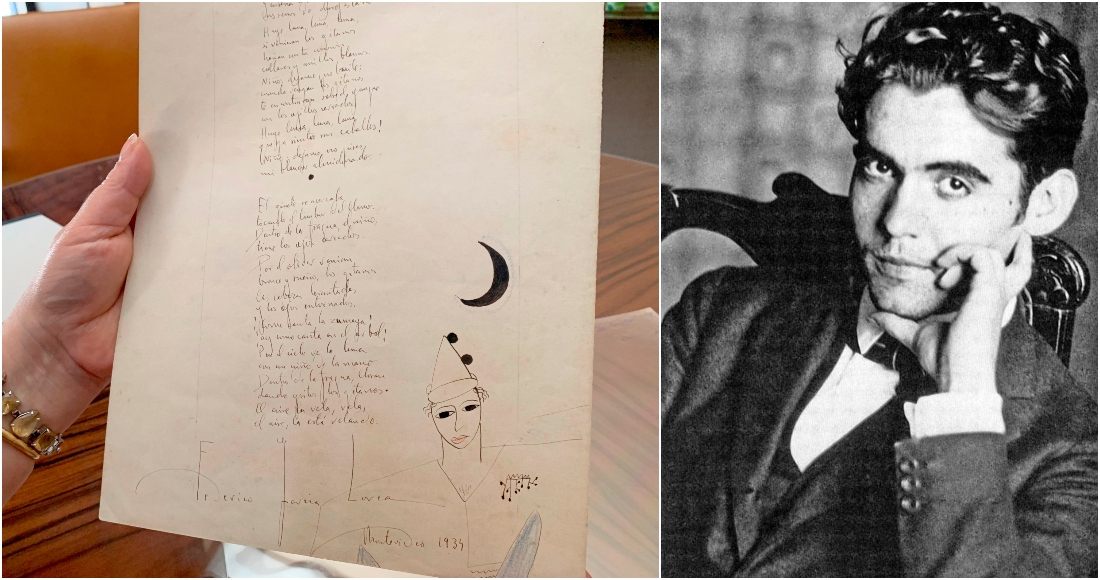 Huye luna, luna, luna,
si vinieran los gitanos
collares y anillos blancos
Niño, dejame, que baile;
cuando vengan los gitanos
te encontrarán sobre el yunque
con los ojillos cerrados
Huye luna, luna, luna
que ya siento sus caballos!
Niño, dejame, no pises
mi blancor almidonado.
El jinete se acercaba
tocando el tambor del llano.
Dentro de la fragua, el niño,
tiene los ojos cerrados.
Por el olivar venian,
bronce y sueño, los gitanos
las cabezas levantadas
y los ojos entornados.
¡Como canta la zumaya!
¡ay como canta en el arbol!
Por el cielo va la luna
con un niño de la mano
Dentro de la fragua, lloran
dando gritos, los gitanos.
El aire la vela, vela,
el aire, la está velando.
Federico García Lorca
Montevideo 1934